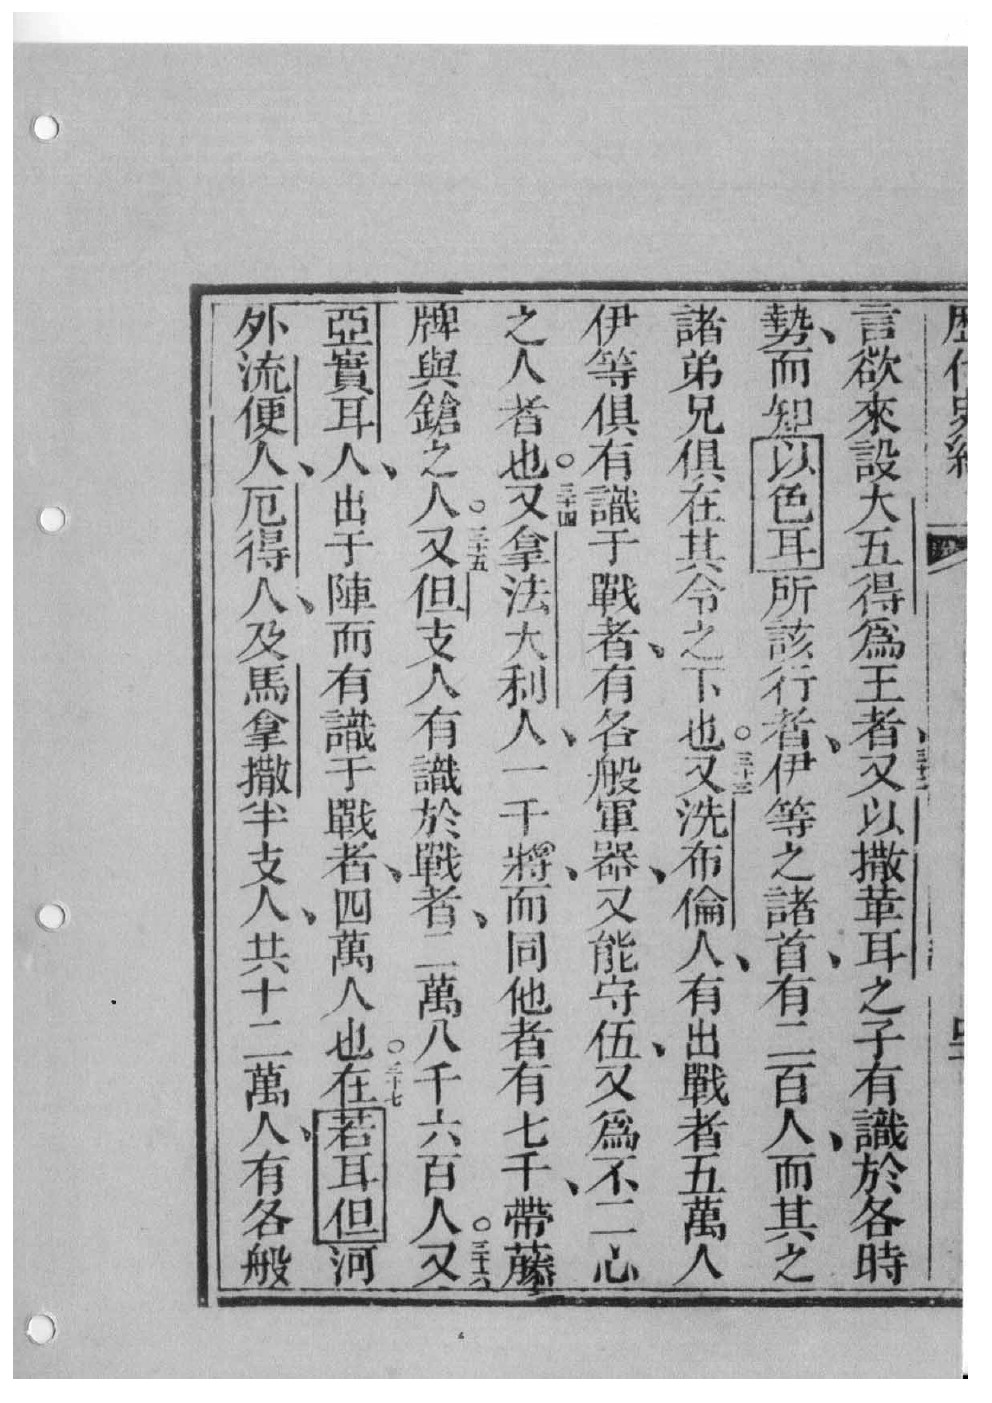 言欲來設大五得爲王者、三十二又以撒革耳之子有識於各時
勢、而知以色耳所該行者、伊等之諸首、有二百人、而其之
諸弟兄俱在其令之下也。三十三又洗布倫人、有出戰者五萬人
伊等俱有識于戰者、有各般軍器、又能守伍、又爲不二心
之人者也。三十四又拿法大利人、一千將、而同他者有七千、帶藤
牌與鎗之人。三十五又但支人有識於戰者、二萬八千六百人。三十六又
亞實耳人、出于陣而有識于戰者、四萬人也。三十七在若耳但河
外流便人、厄得人、及馬拿撒半支人、共十二萬人、有各般